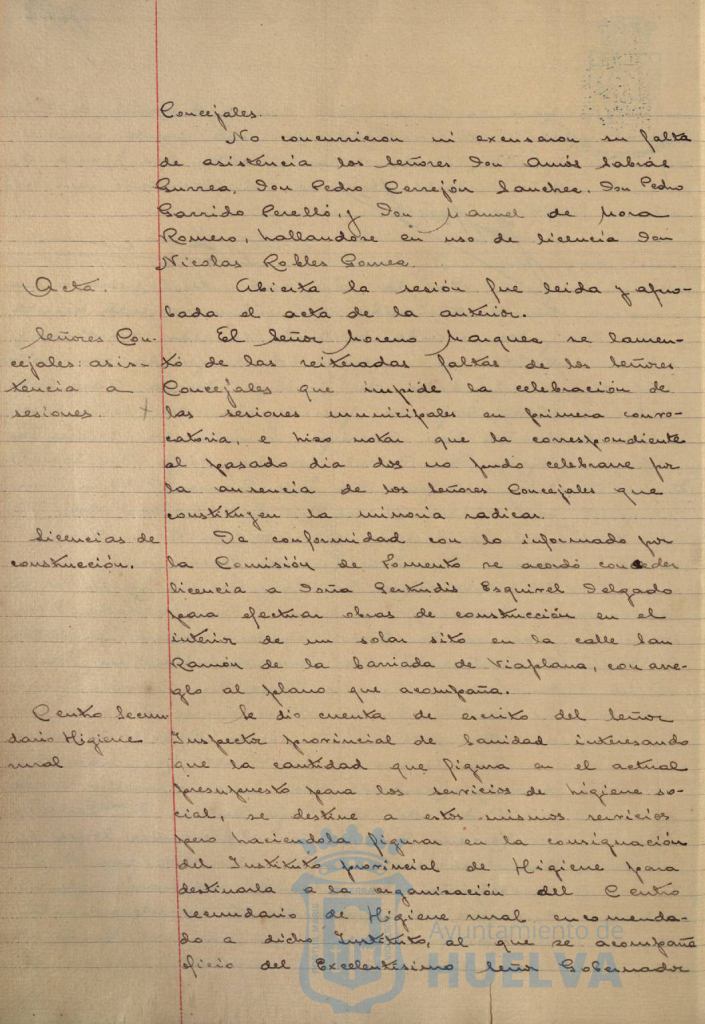 Concejales.
No concurrieron ni excusaron su falta
de asistencia los señores Don Amós Sabrás
Gurrea, Don Pedro Cerrejón Sanchez, Don Pedro
Garrido Perelló, y Don Manuel de Mora
Romero, hallandose en uso de licencia Don
Nicolas Robles Gomez.
Acta.
Abierta la sesión fue leida y apro-
bada el acta de la anterior.
Señores Con-
cejales: asis-
tencia a
sesiones.
El Señor Moreno Marquez se lamen-
tó de las reiteradas faltas de los señores
Concejales que impide la celebración de
las sesiones municipales en primera convo-
catoria, e hizo notar que la correspondiente
al pasado dia dos no pudo celebrarse por
la ausencia de los señores Concejales que
constituyen la minoria radical.
Licencias de
construcción.
De conformidad con lo informado por
la Comisión de Fomento se acordó conceder
licencia a Doña Gertrudis Esquivel Delgado
para efectuar obras de construcción en el
interior de un solar sito en la calle San
Ramón de la barriada de Viaplana, con arre-
glo al plano que acompaña.
Centro Secun
dario Higiene
rural
Se dio cuenta de escrito del Señor
Inspector provincial de Sanidad interesando
que la cantidad que figura en el actual
presupuesto para los servicios de higiene so-
cial, se destine a estos mismos servicios
pero haciendola figurar en la consignación
del Instituto provincial de Higiene para
destinarla a la organización del Centro
secundario de Higiene rural encomenda-
do a dicho Instituto, al que se acompaña
oficio del Excelentísimo Señor Gobernador
Ayuntamiento de
HUELVA